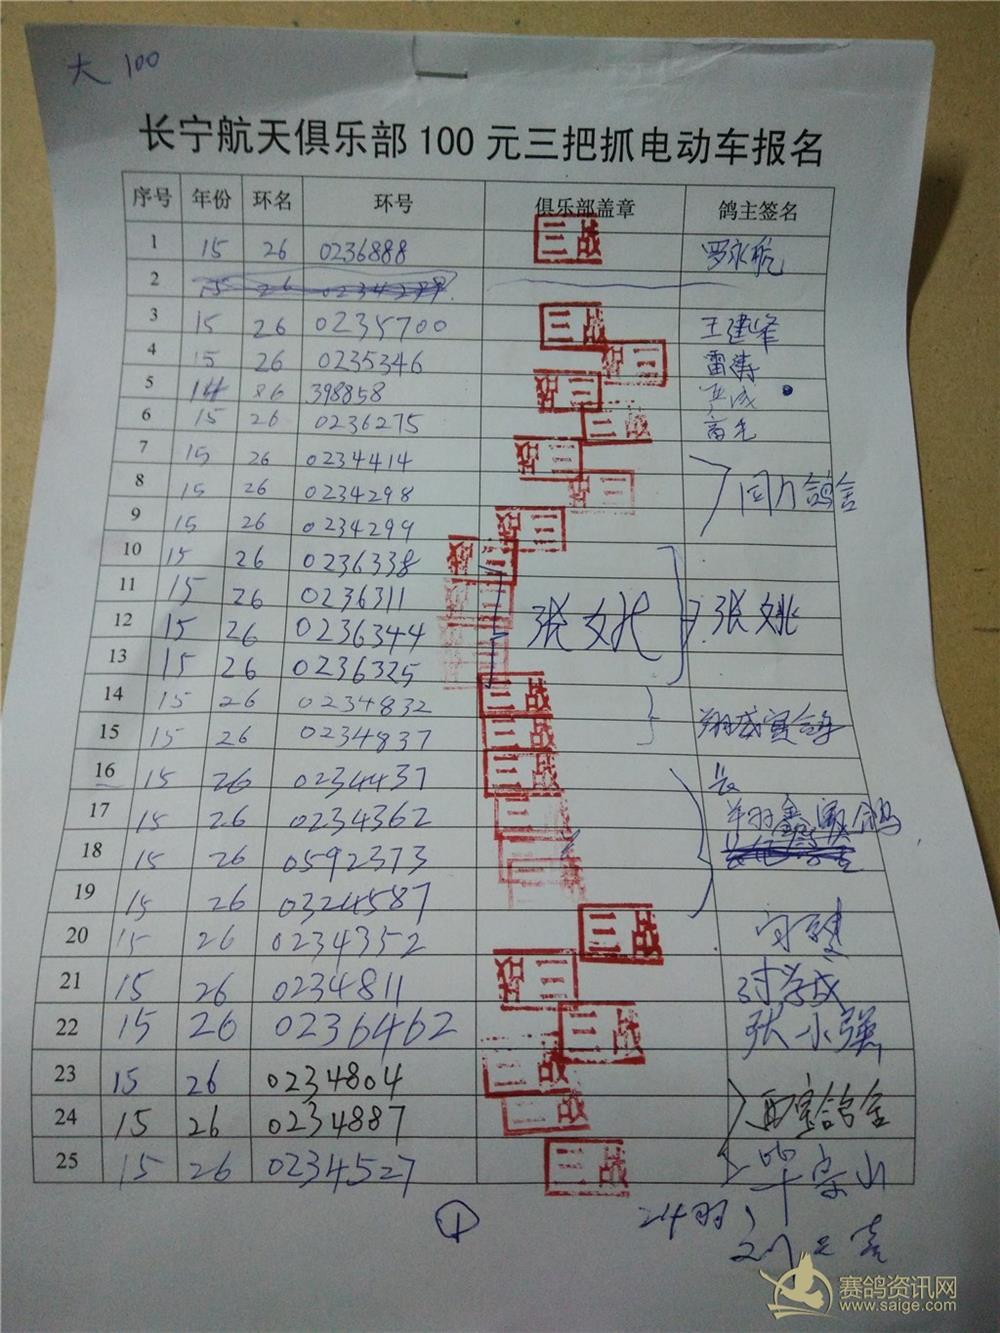 大 100
长宁航天俱乐部 100 元三把抓电动车报名
序号 年份 环名 环号 俱乐部盖章 鸽主签名
1 15 26 0236888 三战 罗永航
2 15 26
3 15 26 0235700 三战 王建军
4 15 26 0235346 战三 雷涛
5 14 26 398858 战三
6 15 26 0236275 三战
7 15 26 0234414 战三
8 15 26 0234298 战三 同力鸽舍
9 15 26 0234299 战三
10 15 26 0236338 战三
11 15 26 0236311
12 15 26 0236344 张姚 张姚
13 15 26 0236325
14 15 26 0234832 三战
15 15 26 0234837 三战 翔成赛鸽
16 15 26 0234437 三战
17 15 26 0234362 三 翔鑫赛鸽
18 15 26 0592373
19 15 26 0324587
20 15 26 0234352 三战
21 15 26 0234811 战三
22 15 26 0236462 三战 张小强
23 15 26 0234804 三战
24 15 26 0234887 三战 鸽舍
25 15 26 0234527 三战 毕宗山
1 24羽
赛鸽资讯网
www.saige.com